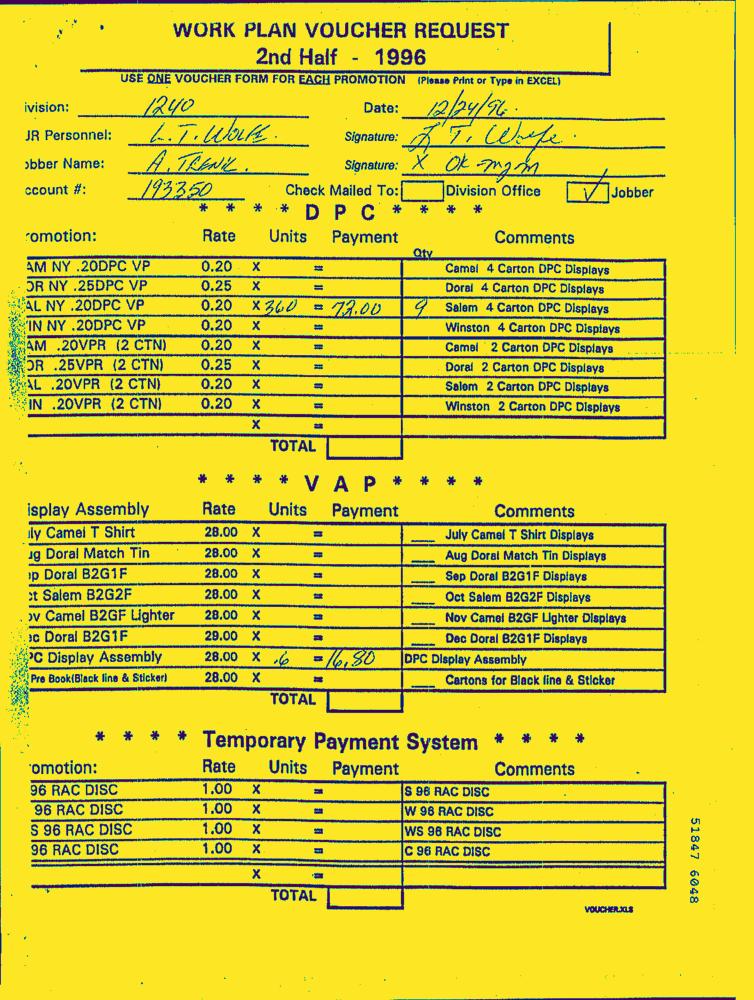 WORK PLAN VOUCHER REQUEST
2nd Half - 1996
USE ONE VOUCHER FORM FOR EACH PROMOTION (Please Print or Type in EXCEL)
ivision: 1240 Date: 12/24/96.
JR Personnel: L.T. WOLFE. Signature: L T. Wolfe.
obber Name: A. TRENK. Signature: X OK mgm
ccount #: 193350 Check Mailed To: Division Office √ Jobber
* * * * D P C * * * *
romotion: Rate Units Payment Qty Comments
AM NY .20DPC VP 0.20 X = Camel 4 Carton DPC Displays
OR NY .25DPC VP 0.25 X = Doral 4 Carton DPC Displays
AL NY .20DPC VP 0.20 X 360 = 72.00 9 Salem 4 Carton DPC Displays
IN NY .20DPC VP 0.20 X = Winston 4 Carton DPC Displays
AM .20VPR (2 CTN) 0.20 X = Camel 2 Carton DPC Displays
OR .25VPR (2 CTN) 0.25 X = Doral 2 Carton DPC Displays
AL .20VPR (2 CTN) 0.20 X = Salem 2 Carton DPC Displays
IN .20VPR (2 CTN) 0.20 X = Winston 2 Carton DPC Displays
X =
TOTAL
* * * * V A P * * * *
isplay Assembly Rate Units Payment Comments
ily Camel T Shirt 28.00 X = ___ July Camel T Shirt Displays
ug Doral Match Tin 28.00 X = ___ Aug Doral Match Tin Displays
ep Doral B2G1F 28.00 X = ___ Sep Doral B2G1F Displays
ct Salem B2G2F 28.00 X = ___ Oct Salem B2G2F Displays
ov Camel B2GF Lighter 28.00 X = ___ Nov Camel B2GF Lighter Displays
ec Doral B2G1F 29.00 X = ___ Dec Doral B2G1F Displays
PC Display Assembly 28.00 X .6 = 16.80 DPC Display Assembly
Pre Book(Black line & Sticker) 28.00 X = ___ Cartons for Black line & Sticker
TOTAL
* * * * Temporary Payment System * * * *
omotion: Rate Units Payment Comments
96 RAC DISC 1.00 X = S 96 RAC DISC
96 RAC DISC 1.00 X = W 96 RAC DISC
S 96 RAC DISC 1.00 X = WS 96 RAC DISC
96 RAC DISC 1.00 X = C 96 RAC DISC
X =
TOTAL
VOUCHER.XLS
51847 6048